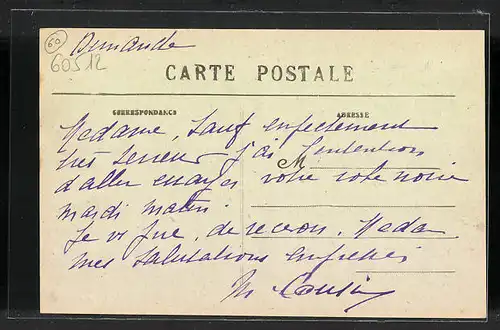 60
Demande
60512
CARTE POSTALE
CORRESPONDANCE
ADRESSE
Madame, sauf
très serieux j'ai l'intention
M
d'aller essayer votre robe noire
mardi matin.
Je vs prie, de recevoir, Mada
mes salutations empressées
M Cousin